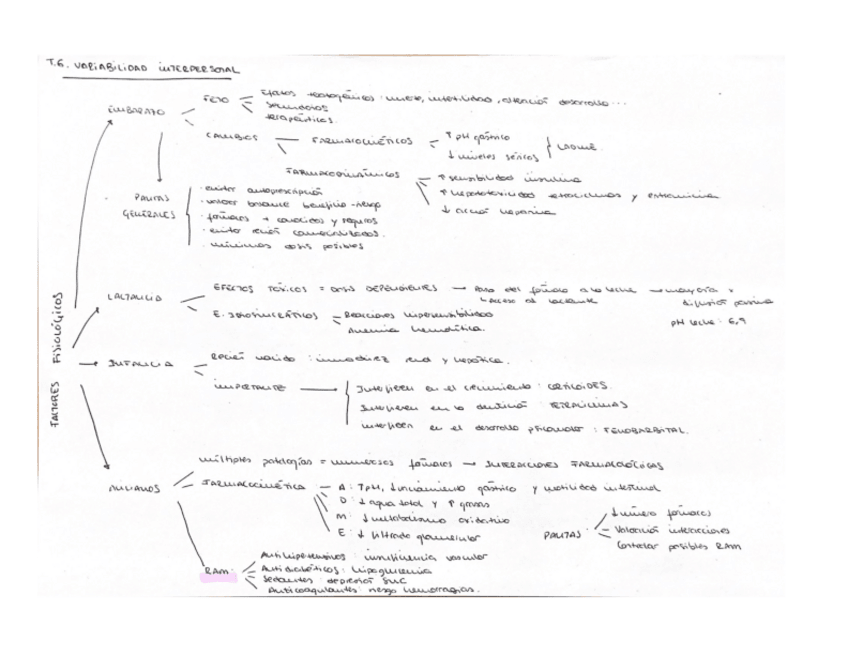 T.6. VARIABILIDAD INTERPERSONAL
FACTORES FISIOLÓGICOS
EMBARAZO
FETO
Efectos teratogénicos: muerte, infertilidad, alteración desarrollo...
Secundarios
terapéuticos.
CAMBIOS
FARMACOCINÉTICOS
↑ pH gástrico
↓ niveles séricos
FARMACODINÁMICOS
↑ sensibilidad insulina
↑ hepatotoxicidad tetraciclinas y eritromicina
↓ acción heparina
PAUTAS GENERALES
· evitar autoprescripción
· valorar balance beneficio-riesgo
· fármacos + conocidos y seguros
· evitar recién comercializados.
· mínimas dosis posibles
LACTANCIA
EFECTOS TÓXICOS = DOSIS DEPENDIENTES → Paso del fármaco a la leche → mayoría =
↳ acceso al lactante
difusión pasiva
pH leche: 6,9
E. IDIOSINCRÁTICOS
Reacciones hipersensibilidad
Anemia hemolítica.
INFANCIA
Recién nacido: inmadurez renal y hepática.
IMPORTANTE
Interfieren en el crecimiento: CORTICOIDES.
Interfieren en la dentición: TETRACICLINAS
Interfieren en el desarrollo psicomotor: FENOBARBITAL.
ANCIANOS
múltiples patologías = numerosos fármacos → INTERACCIONES FARMACOLÓGICAS
FARMACOCINÉTICA
A: ↑pH, ↓vaciamiento gástrico y motilidad intestinal
D: ↓ agua total y ↑ grasas
M: ↓ metabolismo oxidativo
E: ↓ filtrado glomerular
PAUTAS
↓ número fármacos
Valoración interacciones
Controlar posibles RAM
RAM:
Antihipertensivos: insuficiencia vascular
Antidiabéticos: hipoglucemia
Sedantes: depresión SNC
Anticoagulantes: riesgo hemorragias.